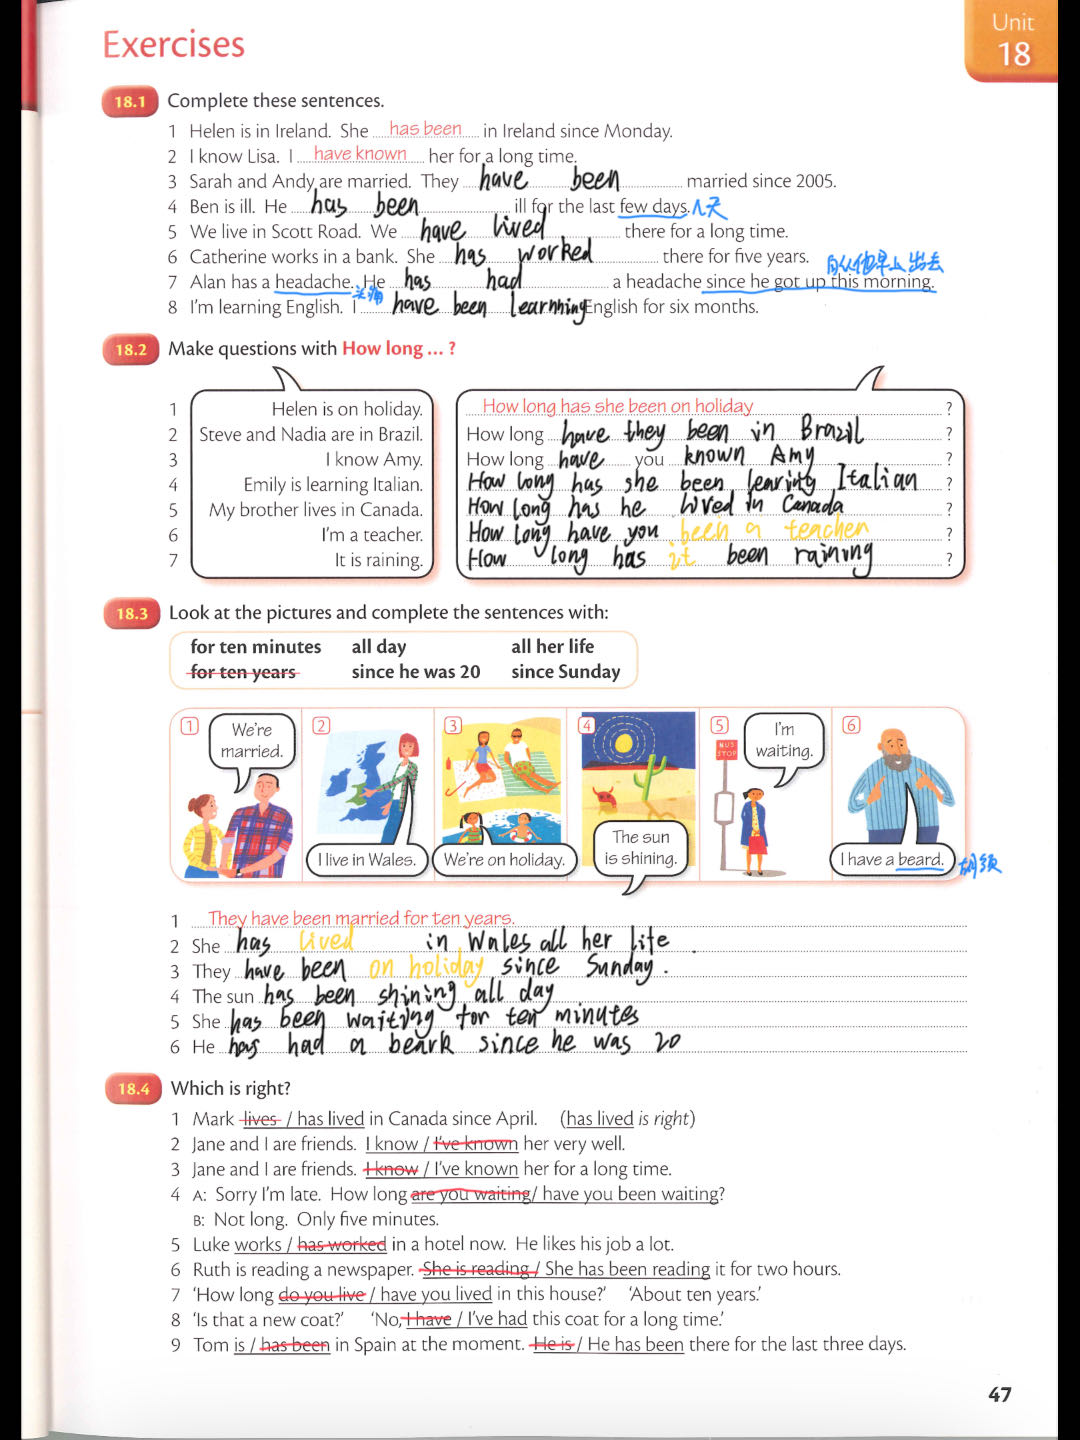 Exercises
Unit
18
18.1 Complete these sentences.
1 Helen is in Ireland. She has been in Ireland since Monday.
2 I know Lisa. I have known her for a long time.
3 Sarah and Andy are married. They have been married since 2005.
4 Ben is ill. He has been ill for the last few days. 几天
5 We live in Scott Road. We have lived there for a long time.
6 Catherine works in a bank. She has worked there for five years.
自从他早上出去
7 Alan has a headache. He has had a headache since he got up this morning.
头痛
8 I'm learning English. I have been learnhing English for six months.
18.2 Make questions with How long ... ?
1 Helen is on holiday. How long has she been on holiday ?
2 Steve and Nadia are in Brazil. How long have they been in Brazil ?
3 I know Amy. How long have you known Amy ?
4 Emily is learning Italian. How long has she been learing Italian ?
5 My brother lives in Canada. How long has he lived in Canada ?
6 I'm a teacher. How long have you been a teacher ?
7 It is raining. How long has it been raining ?
18.3 Look at the pictures and complete the sentences with:
for ten minutes all day all her life
for ten years since he was 20 since Sunday
1 We're married.
2 I live in Wales.
3 We're on holiday.
4 The sun is shining.
5 BUS STOP I'm waiting.
6 I have a beard. 胡须
1 They have been married for ten years.
2 She has lived in Wales all her life .
3 They have been on holiday since Sunday .
4 The sun has been shining all day
5 She has been waiting for ten minutes
6 He has had a beark since he was 20
18.4 Which is right?
1 Mark lives / has lived in Canada since April. (has lived is right)
2 Jane and I are friends. I know / I've known her very well.
3 Jane and I are friends. I know / I've known her for a long time.
4 A: Sorry I'm late. How long are you waiting / have you been waiting?
B: Not long. Only five minutes.
5 Luke works / has worked in a hotel now. He likes his job a lot.
6 Ruth is reading a newspaper. She is reading / She has been reading it for two hours.
7 'How long do you live / have you lived in this house?' 'About ten years.'
8 'Is that a new coat?' 'No, I have / I've had this coat for a long time.'
9 Tom is / has been in Spain at the moment. He is / He has been there for the last three days.
47